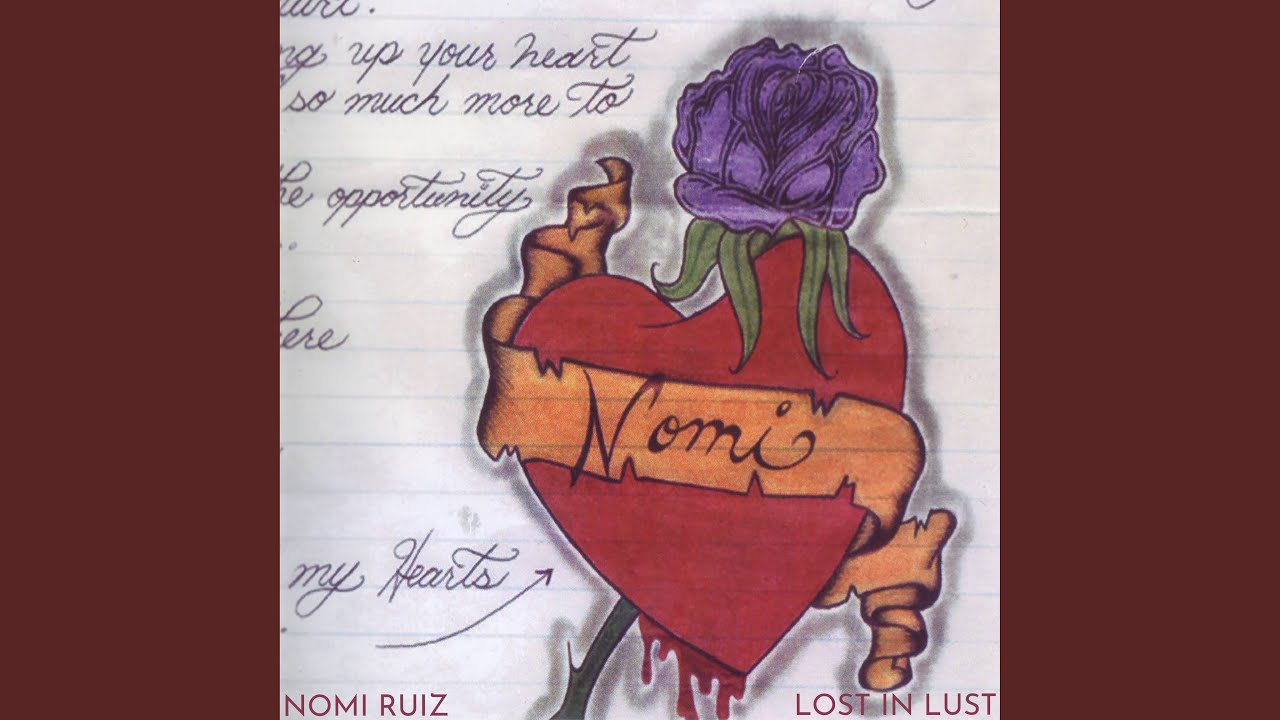 ng up your heart
so much more to
he opportunity
here
Nomi
my Hearts
NOMI RUIZ
LOST IN LUST